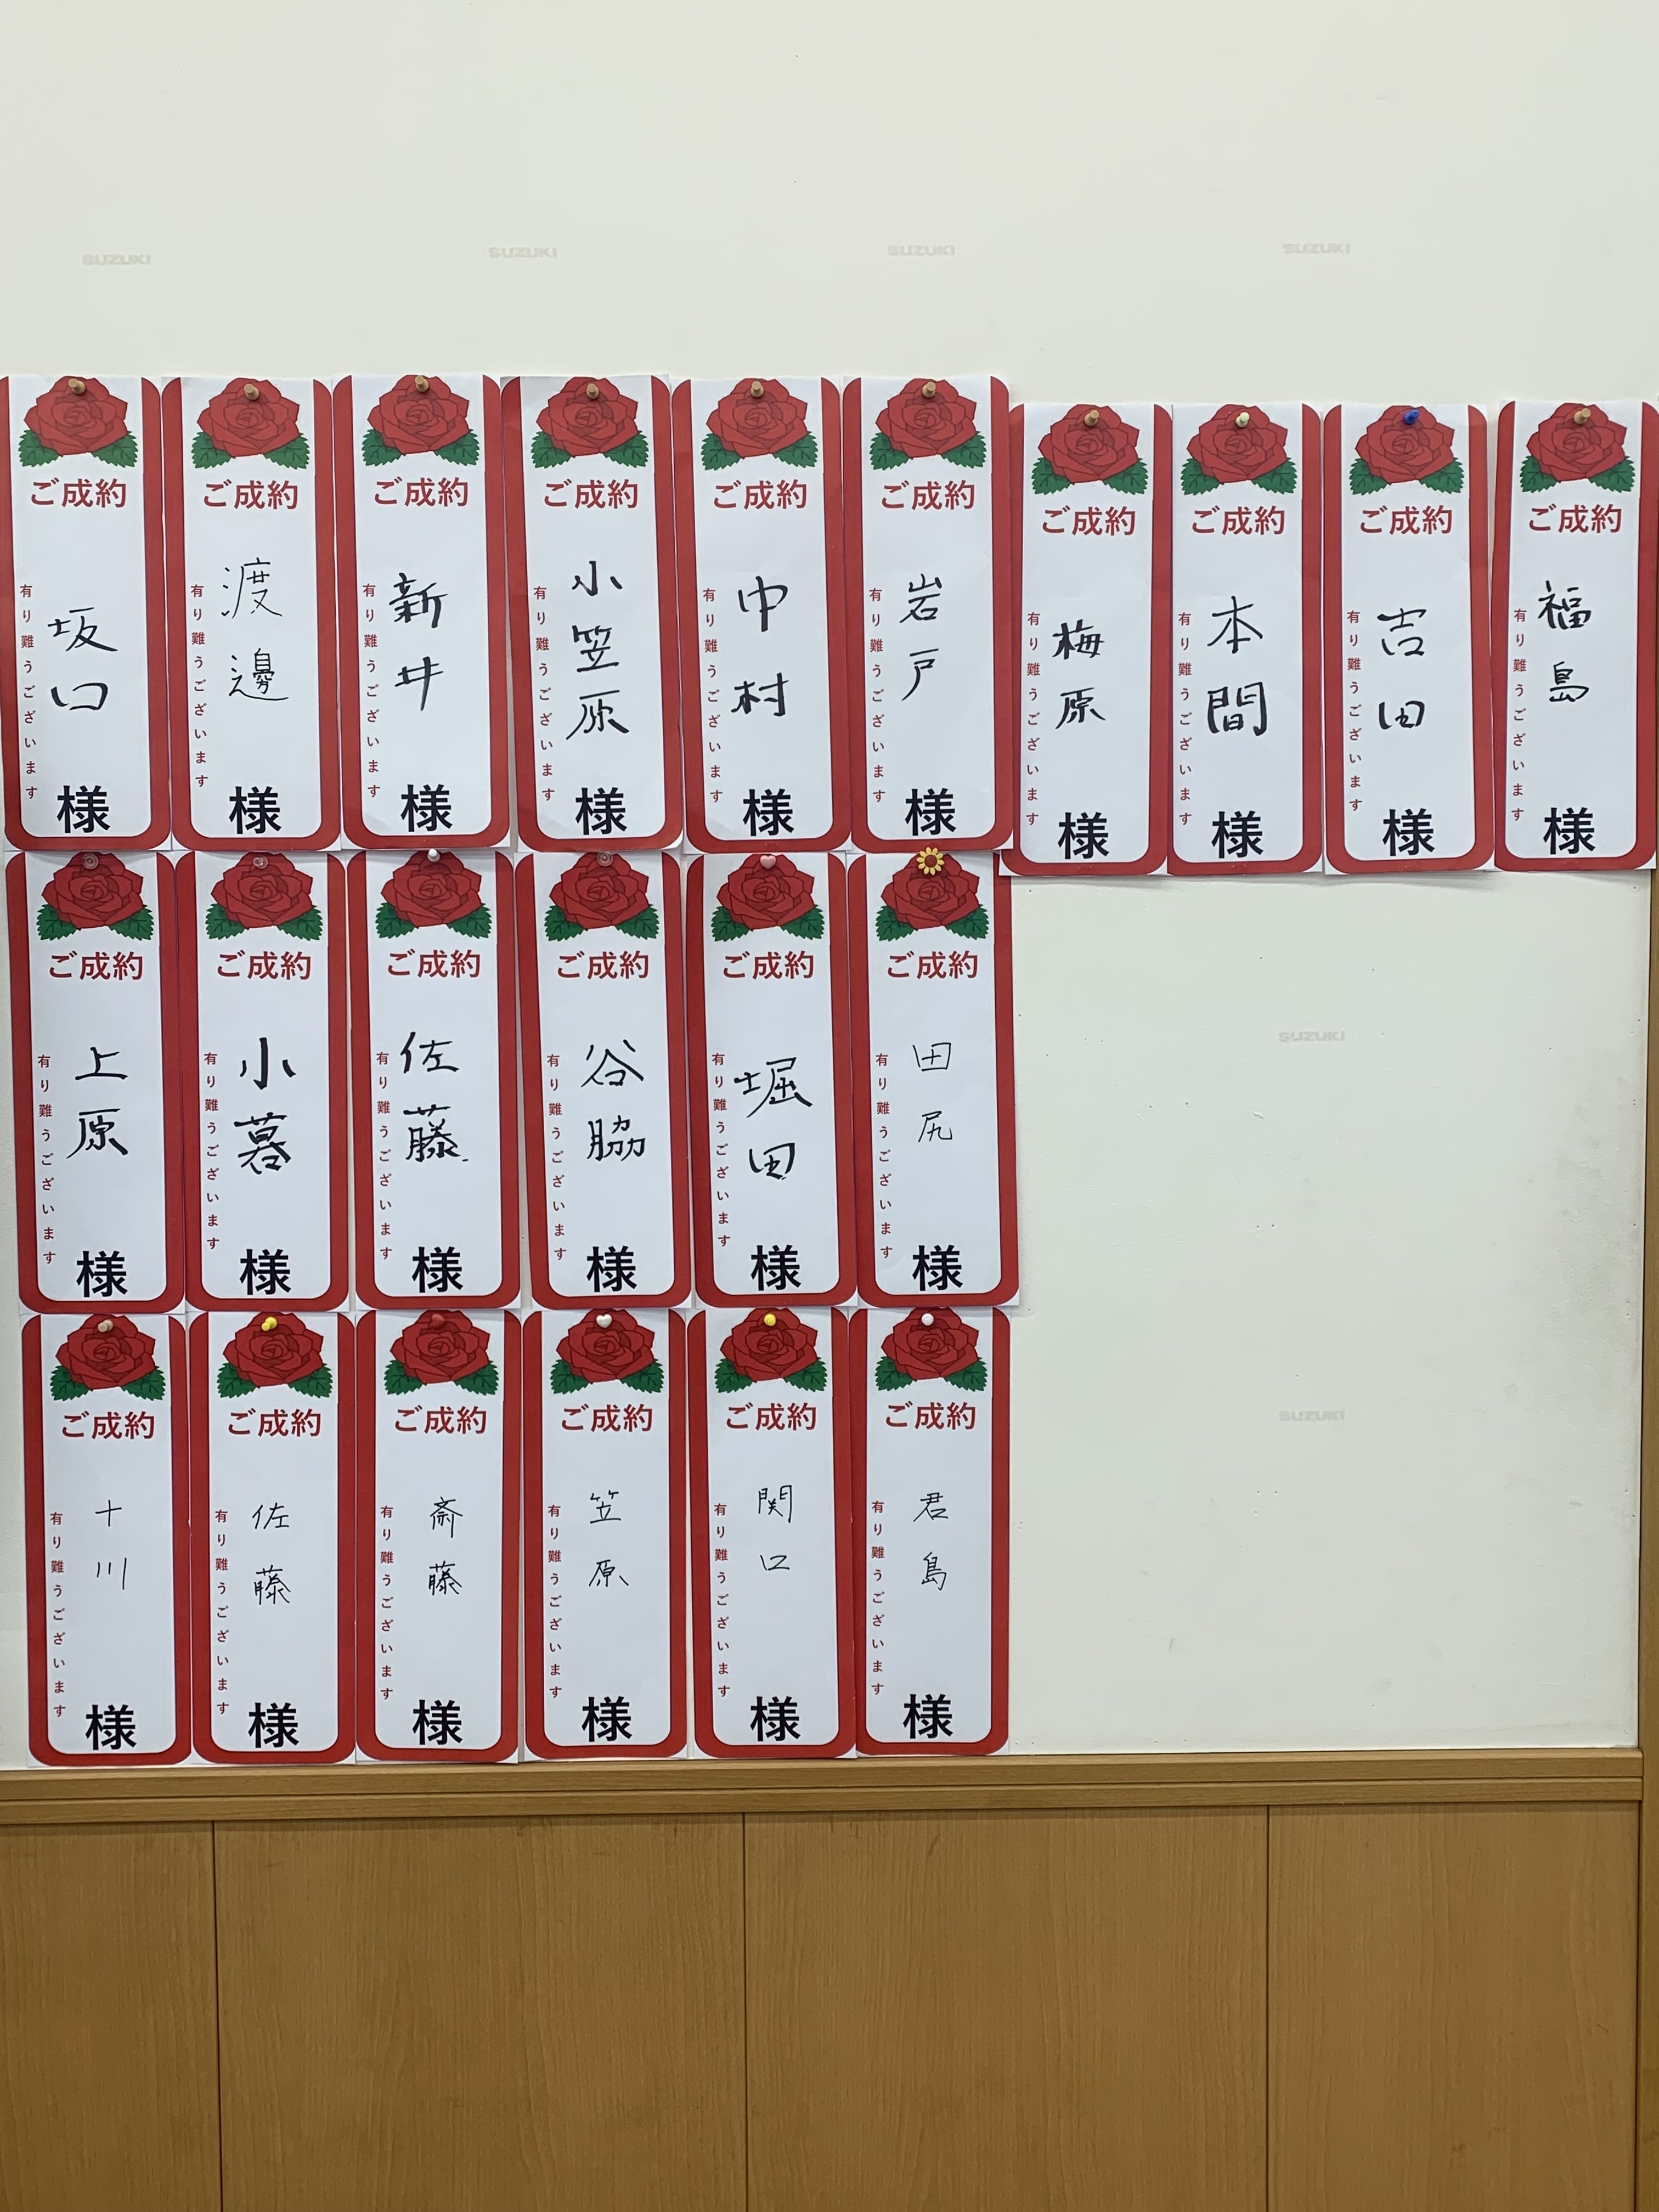 SUZUKI
SUZUKI
SUZUKI
SUZUKI
ご成約
有り難うございます
坂口
様
ご成約
有り難うございます
渡邊
様
ご成約
有り難うございます
新井
様
ご成約
有り難うございます
小笠原
様
ご成約
有り難うございます
中村
様
ご成約
有り難うございます
岩戸
様
ご成約
有り難うございます
梅原
様
ご成約
有り難うございます
本間
様
ご成約
有り難うございます
吉田
様
ご成約
有り難うございます
福島
様
ご成約
有り難うございます
上原
様
ご成約
有り難うございます
小暮
様
ご成約
有り難うございます
佐藤
様
ご成約
有り難うございます
谷脇
様
ご成約
有り難うございます
堀田
様
ご成約
有り難うございます
田尻
様
SUZUKI
ご成約
有り難うございます
十川
様
ご成約
有り難うございます
佐藤
様
ご成約
有り難うございます
斎藤
様
ご成約
有り難うございます
笠原
様
ご成約
有り難うございます
関口
様
ご成約
有り難うございます
君島
様
SUZUKI